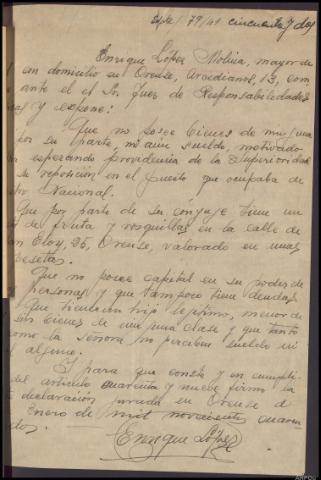 Expte 79/41 cincuenta y dos
Enrique López Molina, mayor de
con domicilio en Orense, Arcedianos, 13, com
ante el et Sr Juez de Responsabilidades
as y expone:
Que no posee bienes de ninguna
por su parte, ni aún sueldo, motivado
esperando providencia de la Superioridad
su reposición en el puesto que ocupaba de
stro Nacional.
Que por parte de su cónyuge tiene un
de fruta y rosquillas en la calle de
n Eloy, 25, Orense, valorado en unas
pesetas.
Que no posee capital en su poder
personas y que tampoco tiene deudas.
Que tienen un hijo legítimo, menor de
sin bienes de ninguna clase y que tanto
como la señora no perciben sueldo ni
alguna.
Y para que conste y en cumpli-
del artículo cuarenta y nueve firmo la
te declaración jurada en Orense a
Enero de mil novecientos cuaren
dos.
Enrique López